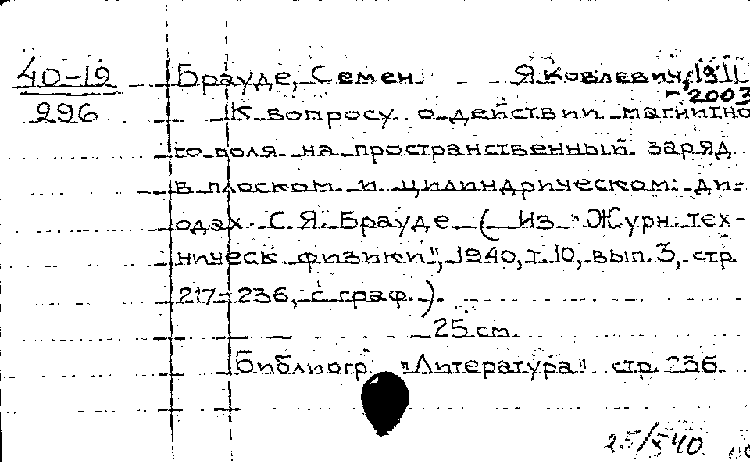 40-19
296
Брауде, Семен Яковлевич, 1911
-2003
К вопросу о действии магнитно
го поля на пространственный заряд
в плоском и цилиндрическом ди-
одах. С. Я. Брауде (Из "Журн. тех-
ническ. физики", 1940, т. 10, вып. 3, стр.
217-236, с граф.).
25 см.
Библиогр. "Литература" стр. 236.